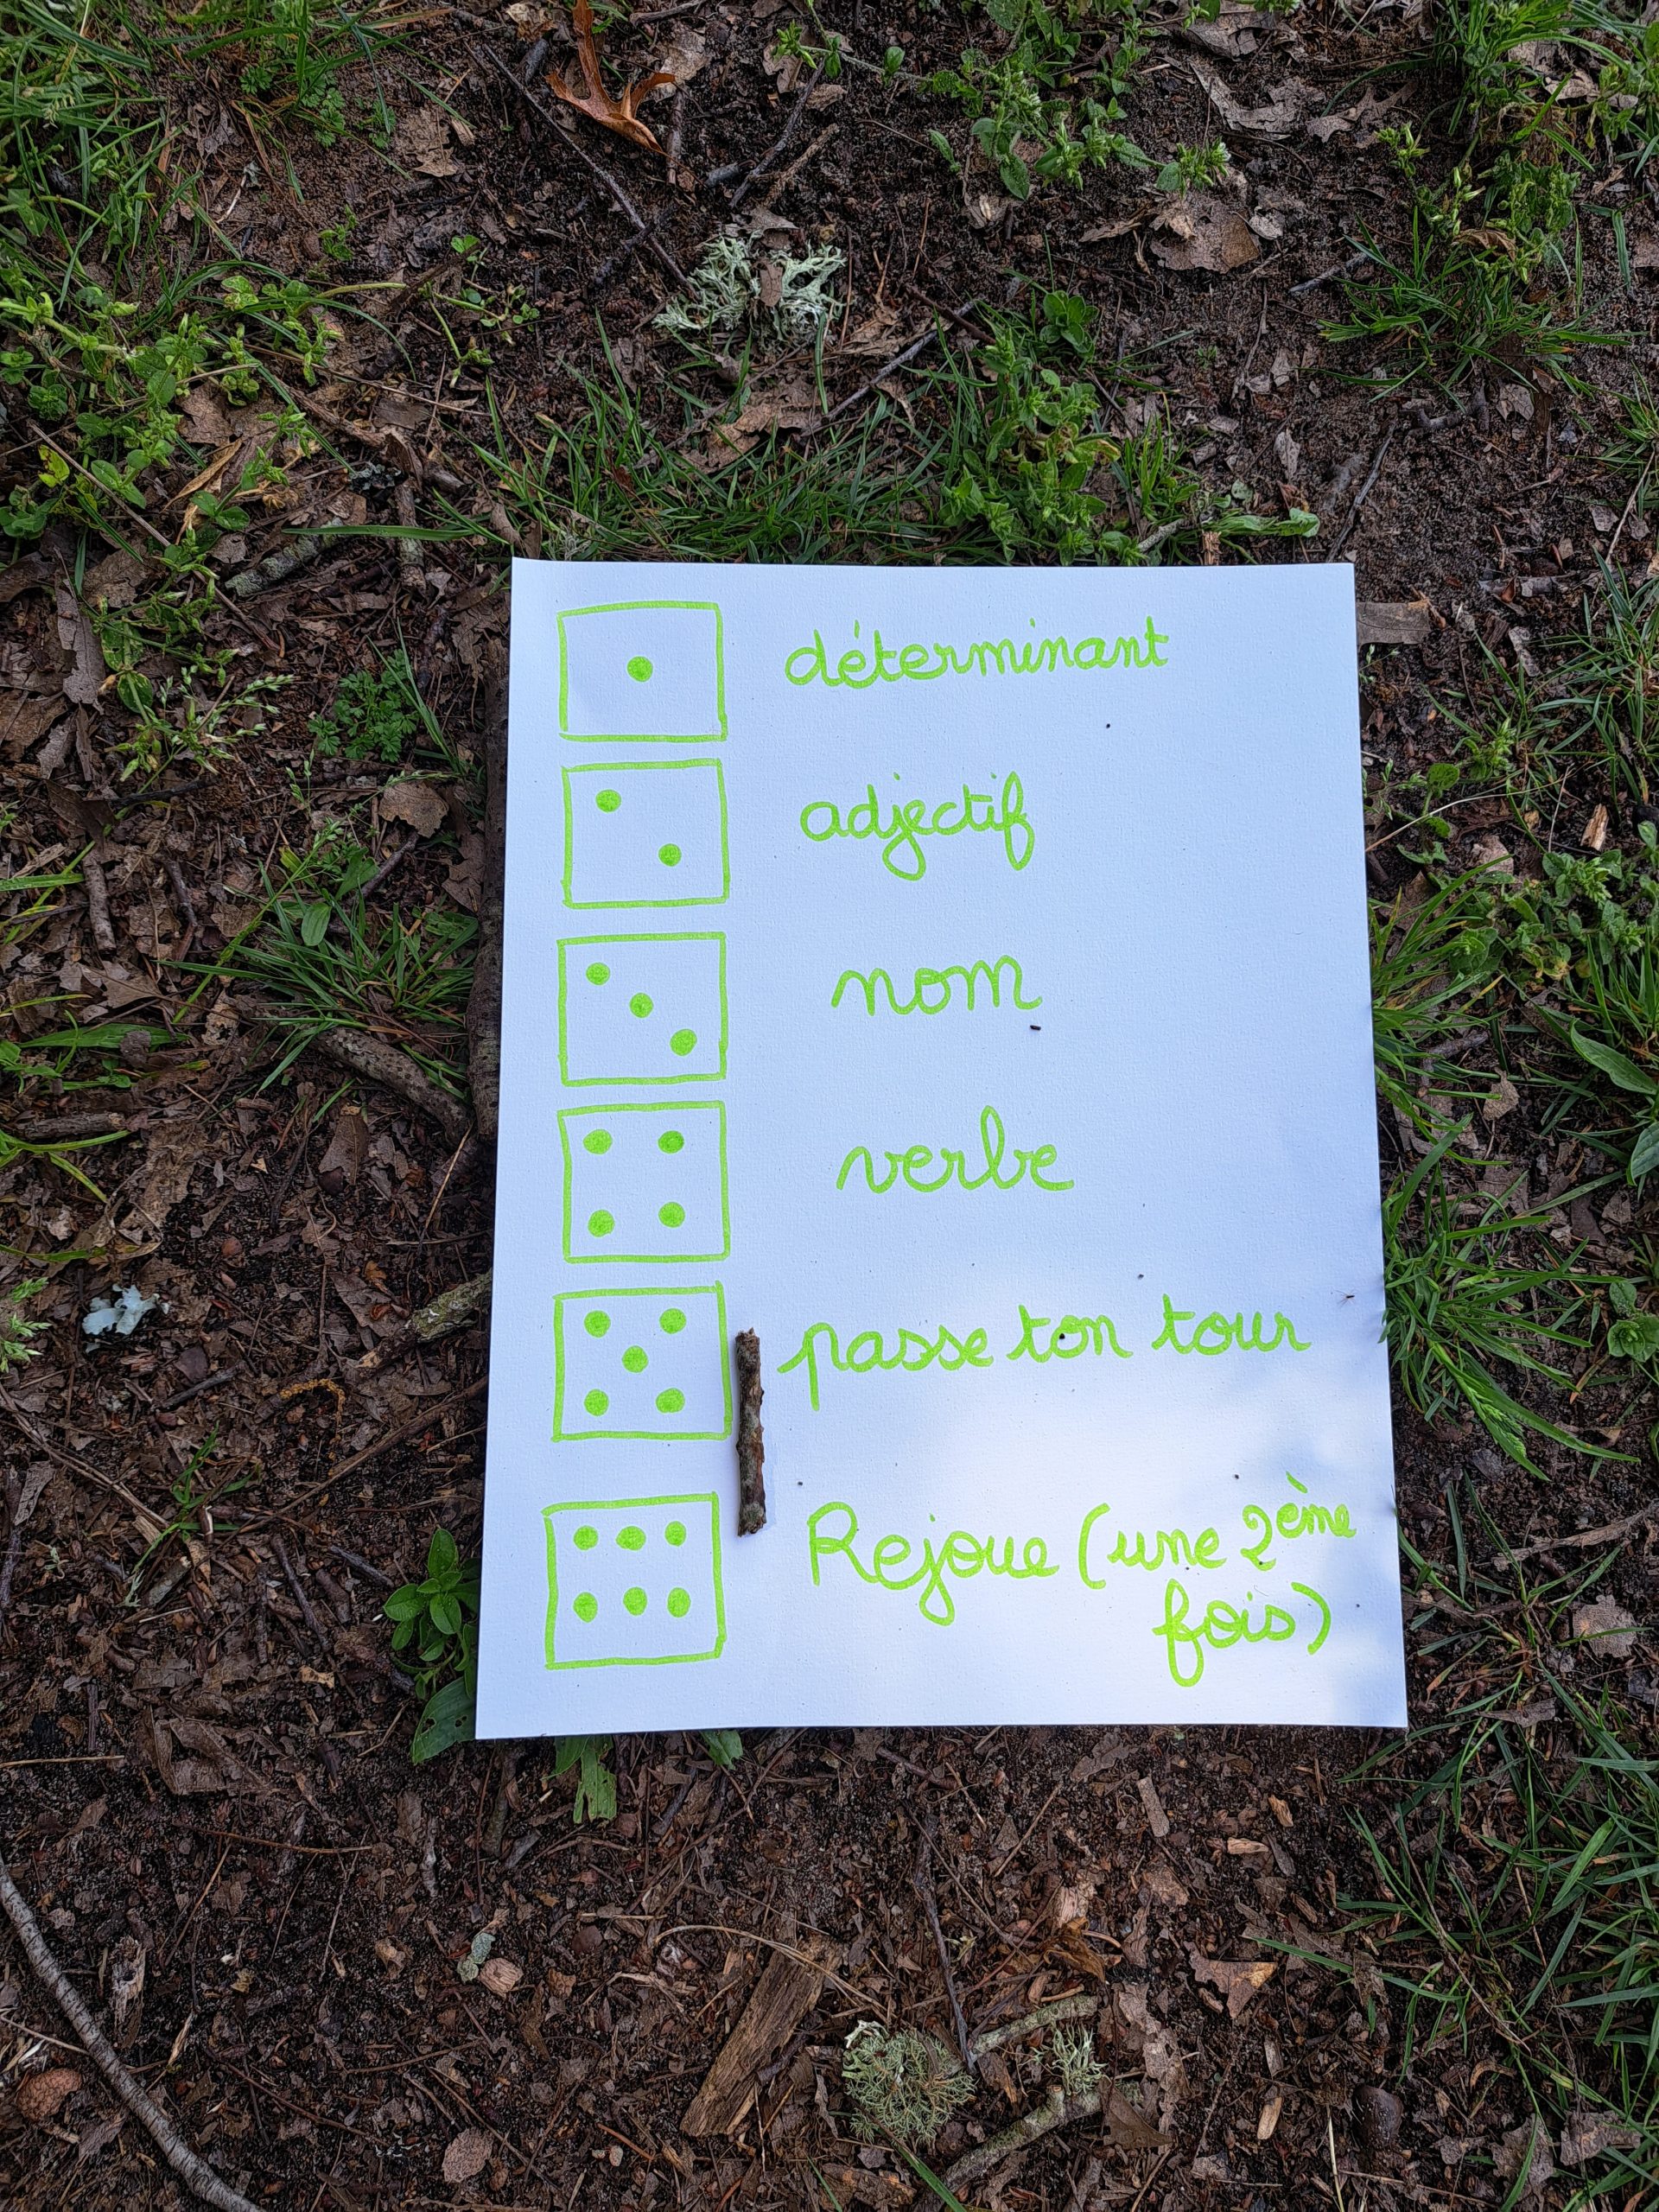 déterminant
adjectif
nom
verbe
passe ton tour
Rejoue (une 2ème
fois)